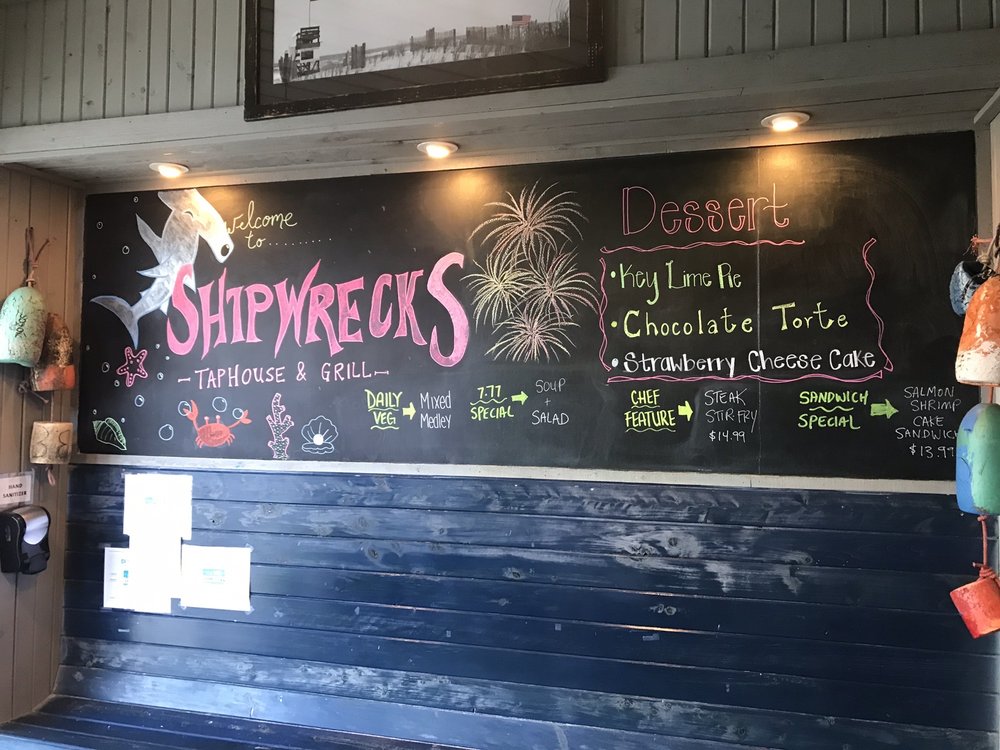 Welcome
to..........
SHIPWRECKS
- TAPHOUSE & GRILL -
DAILY
VEG
Mixed
Medley
7.77
SPECIAL
SOUP
+
SALAD
Dessert
• Key Lime Pie
• Chocolate Torte
• Strawberry Cheese Cake
CHEF
FEATURE
STEAK
STIR FRY
$14.99
SANDWICH
SPECIAL
SALMON
SHRIMP
CAKE
SANDWICH
$13.99
HAND
SANITIZER